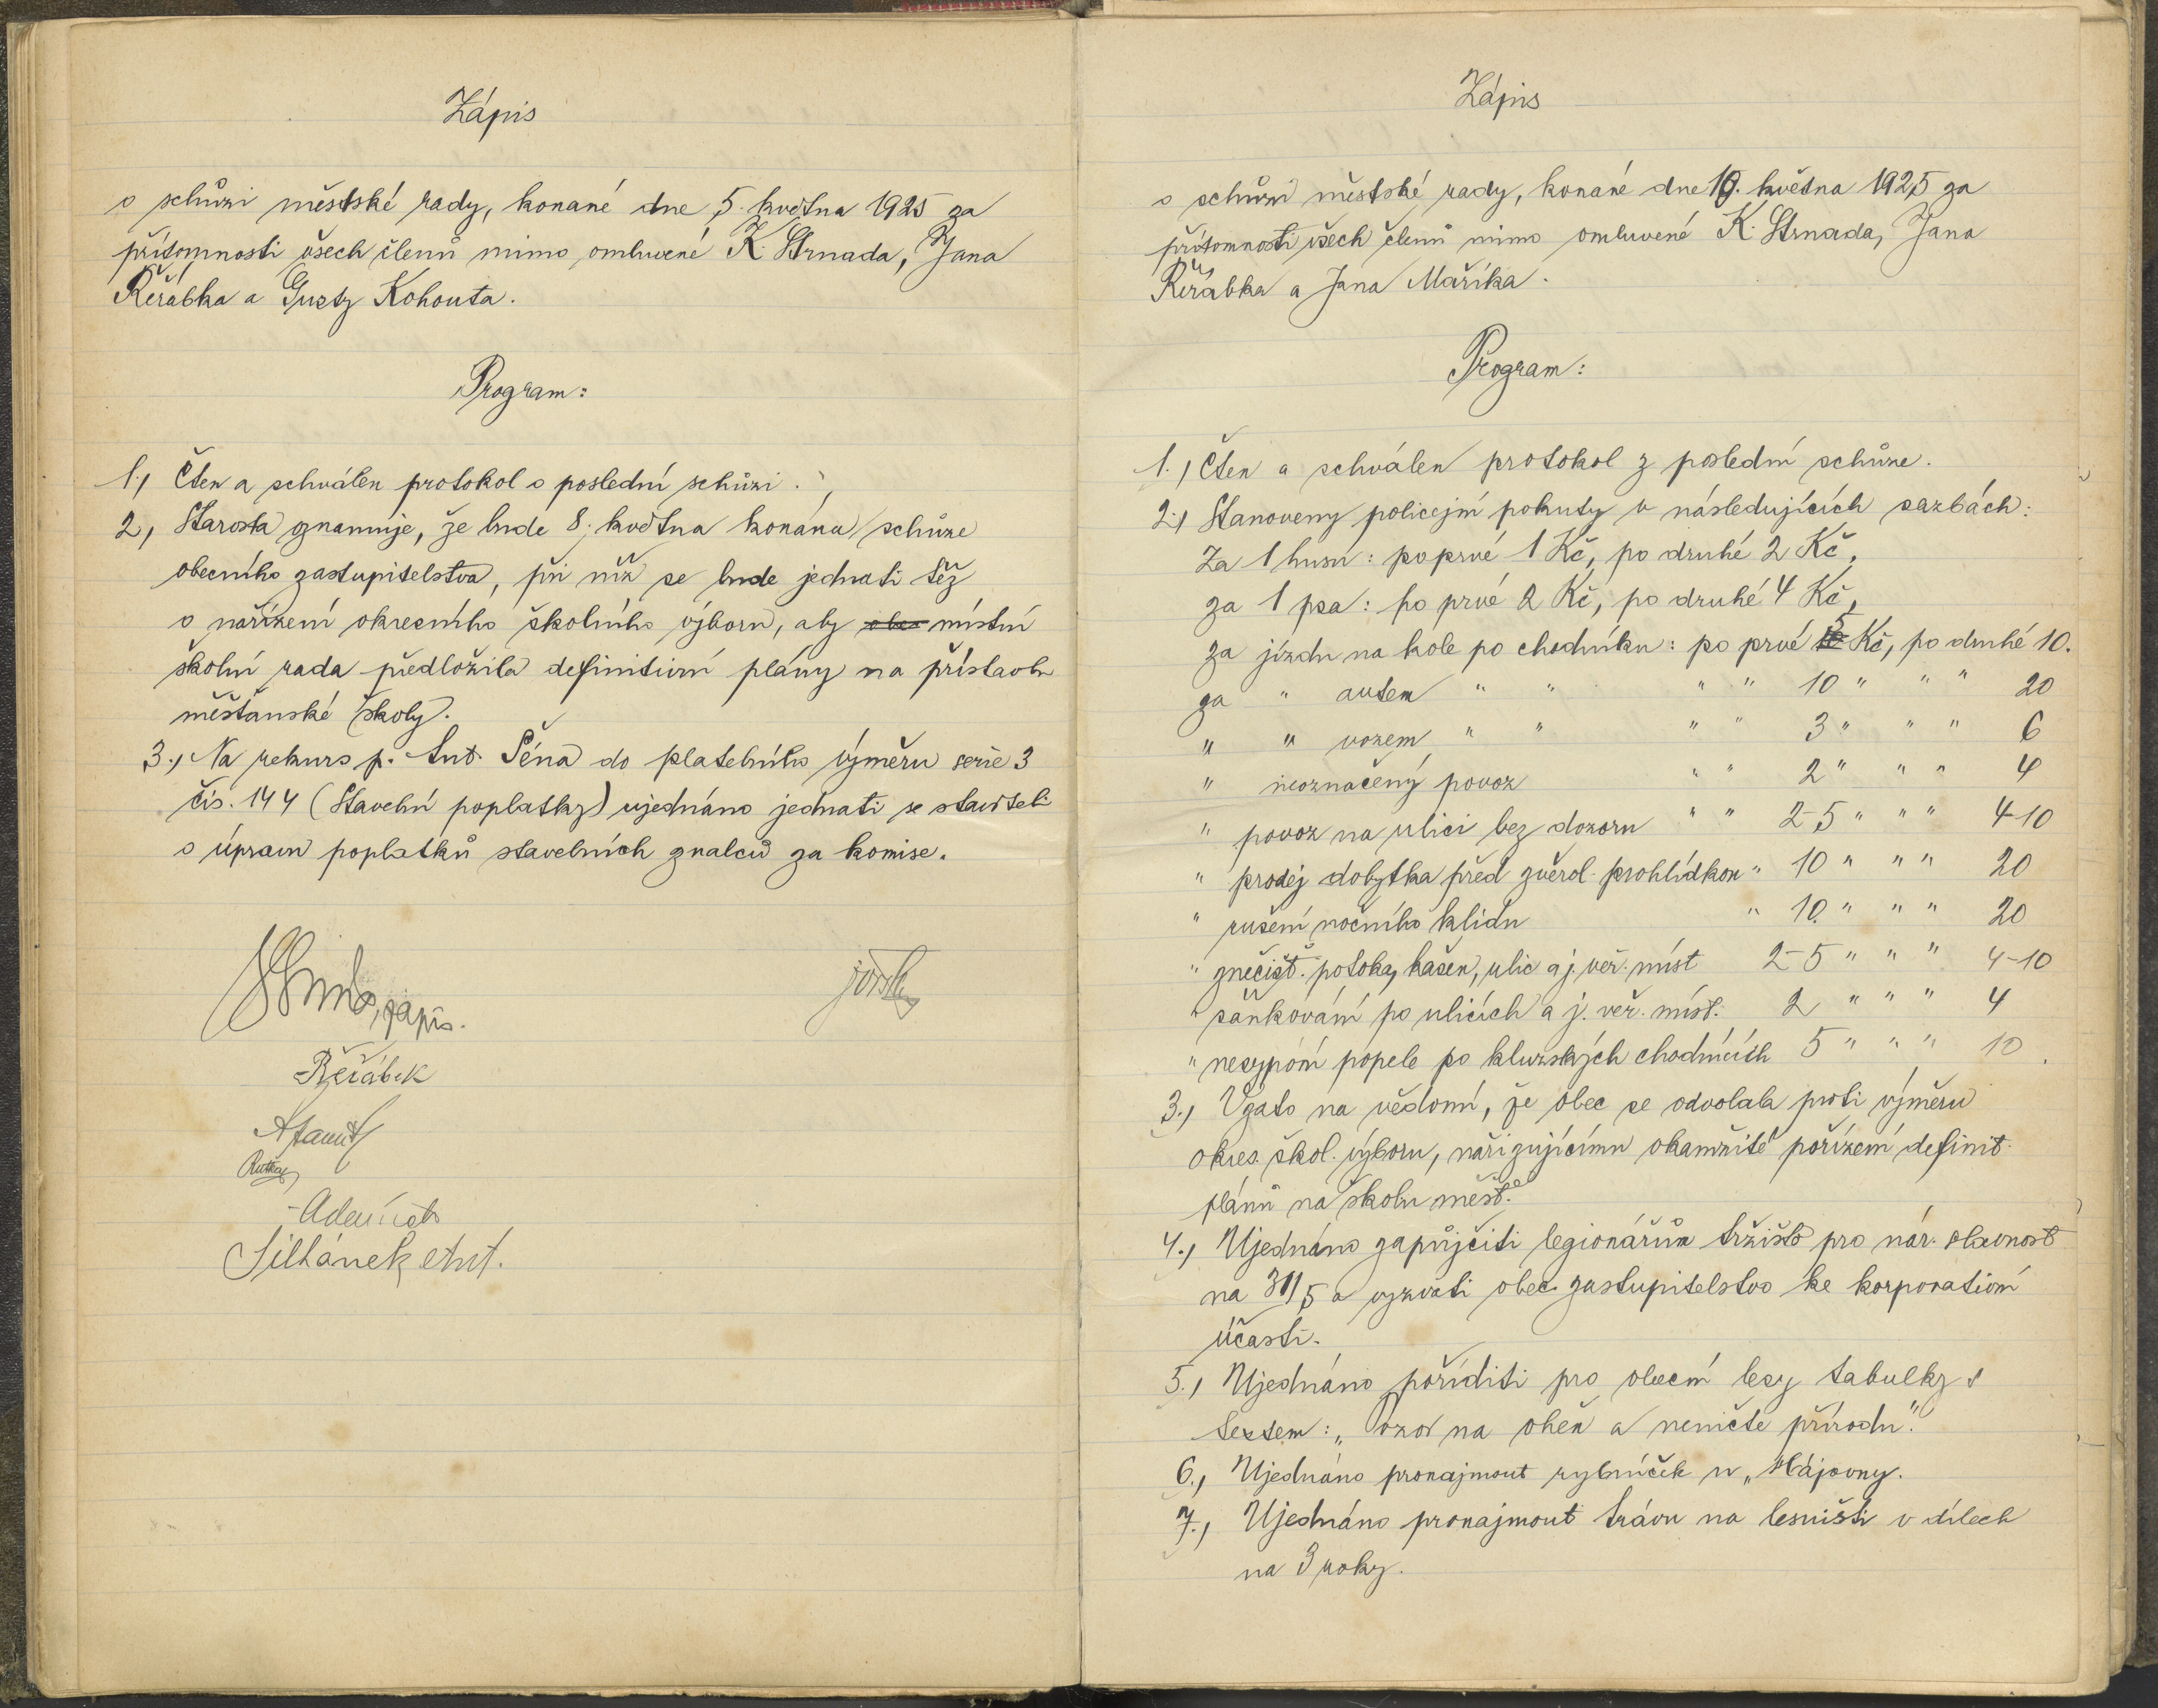 Zápis
o schůzi městské rady, konané dne 5. května 1925 za
přítomnosti všech členů mimo omluvené K. Strnada, Jana
Řeřábka a Gusty Kohouta.
Program:
1., Čten a schválen protokol o poslední schůzi.
2, Starosta oznamuje, že bude 8. května konána schůze
obecního zastupitelstva, při níž se bude jednati též
o nařízení okresního školního výboru, aby obec místní
školní rada předložila definitivní plány na přístavbu
měšťanské školy.
3., Na rekurs p. Ant. Péna do platebního výměru serie 3
čís. 144 (Stavební poplatky) ujednáno jednati se staviteli
o úpravu poplatků stavebních znalců za komise.
zápis.
Řeřábek
Adamíček
Silhánek Ant.
Zápis
o schůzi městské rady, konané dne 19. května 1925 za
přítomnosti všech členů mimo omluvené K. Strnada, Jana
Řeřábka a Jana Maříka.
Program:
1., Čten a schválen protokol z poslední schůze.
2., Stanoveny policejní pokuty v následujících sazbách:
Za 1 husu: po prvé 1 Kč, po druhé 2 Kč,
za 1 psa: po prvé 2 Kč, po druhé 4 Kč,
za jízdu na kole po chodníku: po prvé 5 Kč, po druhé 10.
za " autem " " " " 10 " " " 20
" " vozem " " " " 3 " " " 6
" neoznačený povoz " " 2 " " " 4
" povoz na ulici bez dozoru " " 2-5 " " " 4-10
" prodej dobytka před zvěrol. prohlídkou " 10 " " " 20
" rušení nočního klidu " 10. " " " 20
" znečišť. potoky, kašen, ulic a j. veř. míst 2-5 " " " 4-10
" sáňkování po ulicích a j. veř. míst. 2 " " " 4
" nesypání popele po kluzských chodnících 5 " " " 10.
3., Vzato na vědomí, že obec se odvolala proti výměru
okres. škol. výboru, nařizujícímu okamžité pořízení definit.
plánů na školu měšť.
4., Ujednáno zapůjčiti legionářům tržiště pro nár. slavnost
na 31/5 a vyzvati obec. zastupitelstvo ke korporativní
účasti.
5., Ujednáno poříditi pro obecní lesy tabulky s
textem: „Pozor na oheň a neničte přírodu."
6., Ujednáno pronajmout rybníček u „Hájovny.
7., Ujednáno pronajmout trávu na lesništi v dílech
na 3 roky.